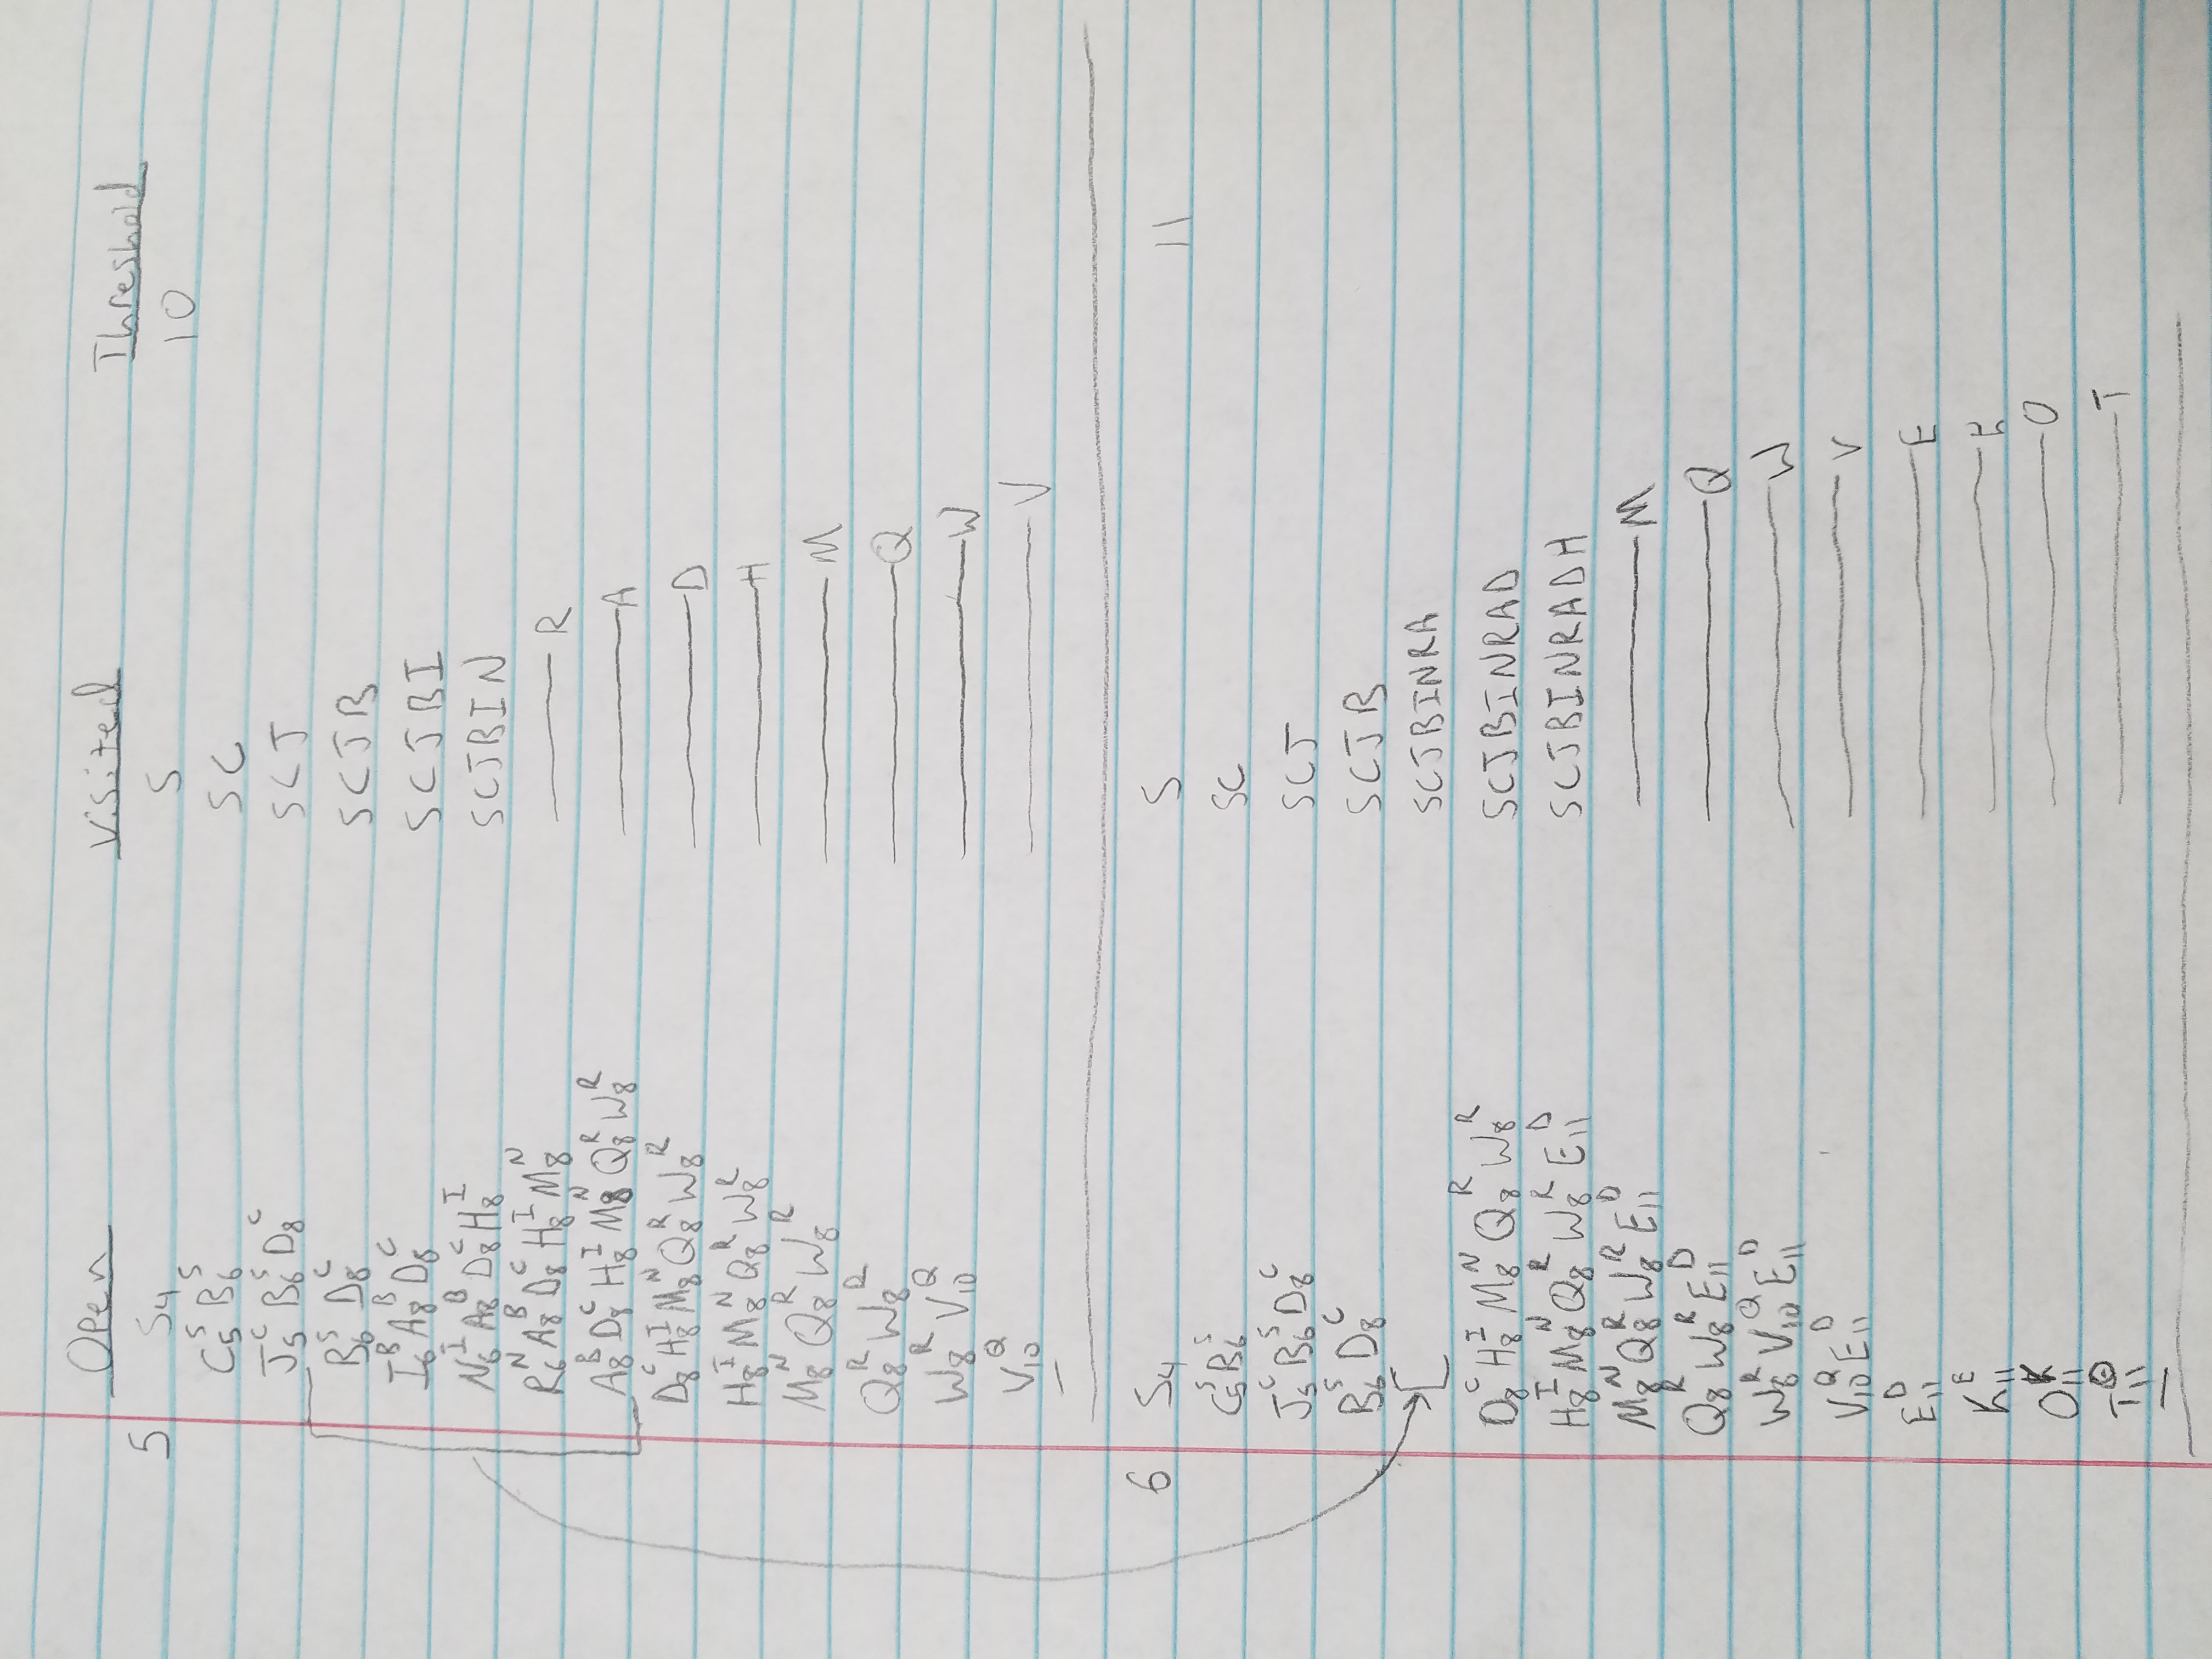 Open Visited Threshold
5 S₄ S 10
C₅ˢ B₆ˢ SC
J₅ᶜ B₆ˢ D₈ᶜ SCJ
B₆ˢ D₈ᶜ SCJB
I₆ᴮ A₈ᴮ D₈ᶜ SCJBI
N₆ᴵ A₈ᴮ D₈ᶜ H₈ᴵ SCJBIN
R₆ᴺ A₈ᴮ D₈ᶜ H₈ᴵ M₈ᴺ —— R
A₈ᴮ D₈ᶜ H₈ᴵ M₈ᴺ Q₈ᴿ W₈ᴿ —— A
D₈ᶜ H₈ᴵ M₈ᴺ Q₈ᴿ W₈ᴿ —— D
H₈ᴵ M₈ᴺ Q₈ᴿ W₈ᴿ —— H
M₈ᴺ Q₈ᴿ W₈ᴿ —— M
Q₈ᴿ W₈ᴿ —— Q
W₈ᴿ V₁₀Q —— W
V₁₀Q —— V
—
6 S₄ S 11
C₅ˢ B₆ˢ SC
J₅ᶜ B₆ˢ D₈ᶜ SCJ
B₆ˢ D₈ᶜ SCJB
[ SCJBINRA
D₈ᶜ H₈ᴵ M₈ᴺ Q₈ᴿ W₈ᴿ SCJBINRAD
H₈ᴵ M₈ᴺ Q₈ᴿ W₈ᴿ E₁₁ᴰ SCJBINRADH
M₈ᴺ Q₈ᴿ W₈ᴿ E₁₁ᴰ —— M
Q₈ᴿ W₈ᴿ E₁₁ᴰ —— Q
W₈ᴿ V₁₀Q E₁₁ᴰ —— W
V₁₀Q E₁₁ᴰ —— V
E₁₁ᴰ —— E
K₁₁ᴱ —— K
O₁₁ᴷ —— O
T₁₁ᴼ —— T
—